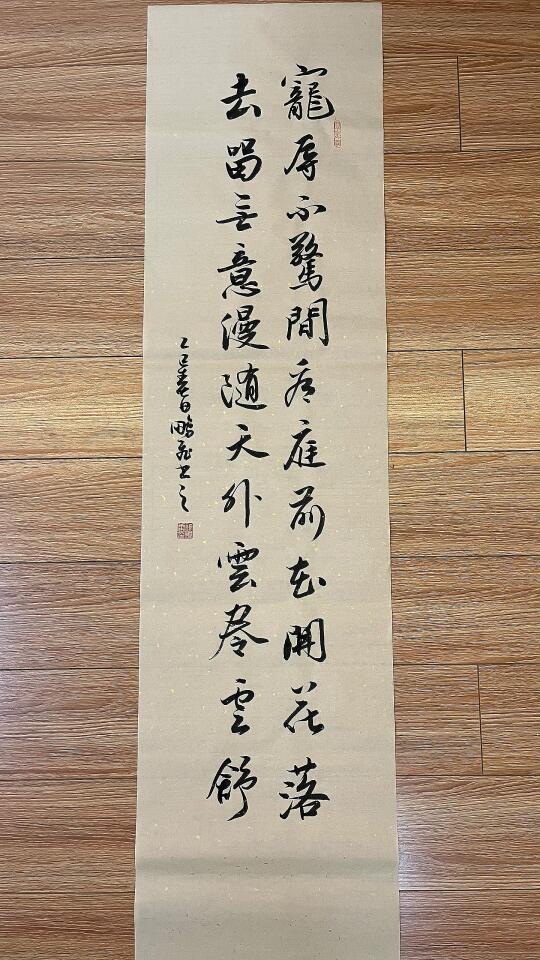 寵辱不驚間看庭前花開花落
去留無意漫随天外雲卷雲舒
乙巳春日鵬飛書之